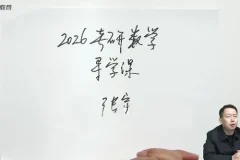 2026考研数学
导学课
张宇